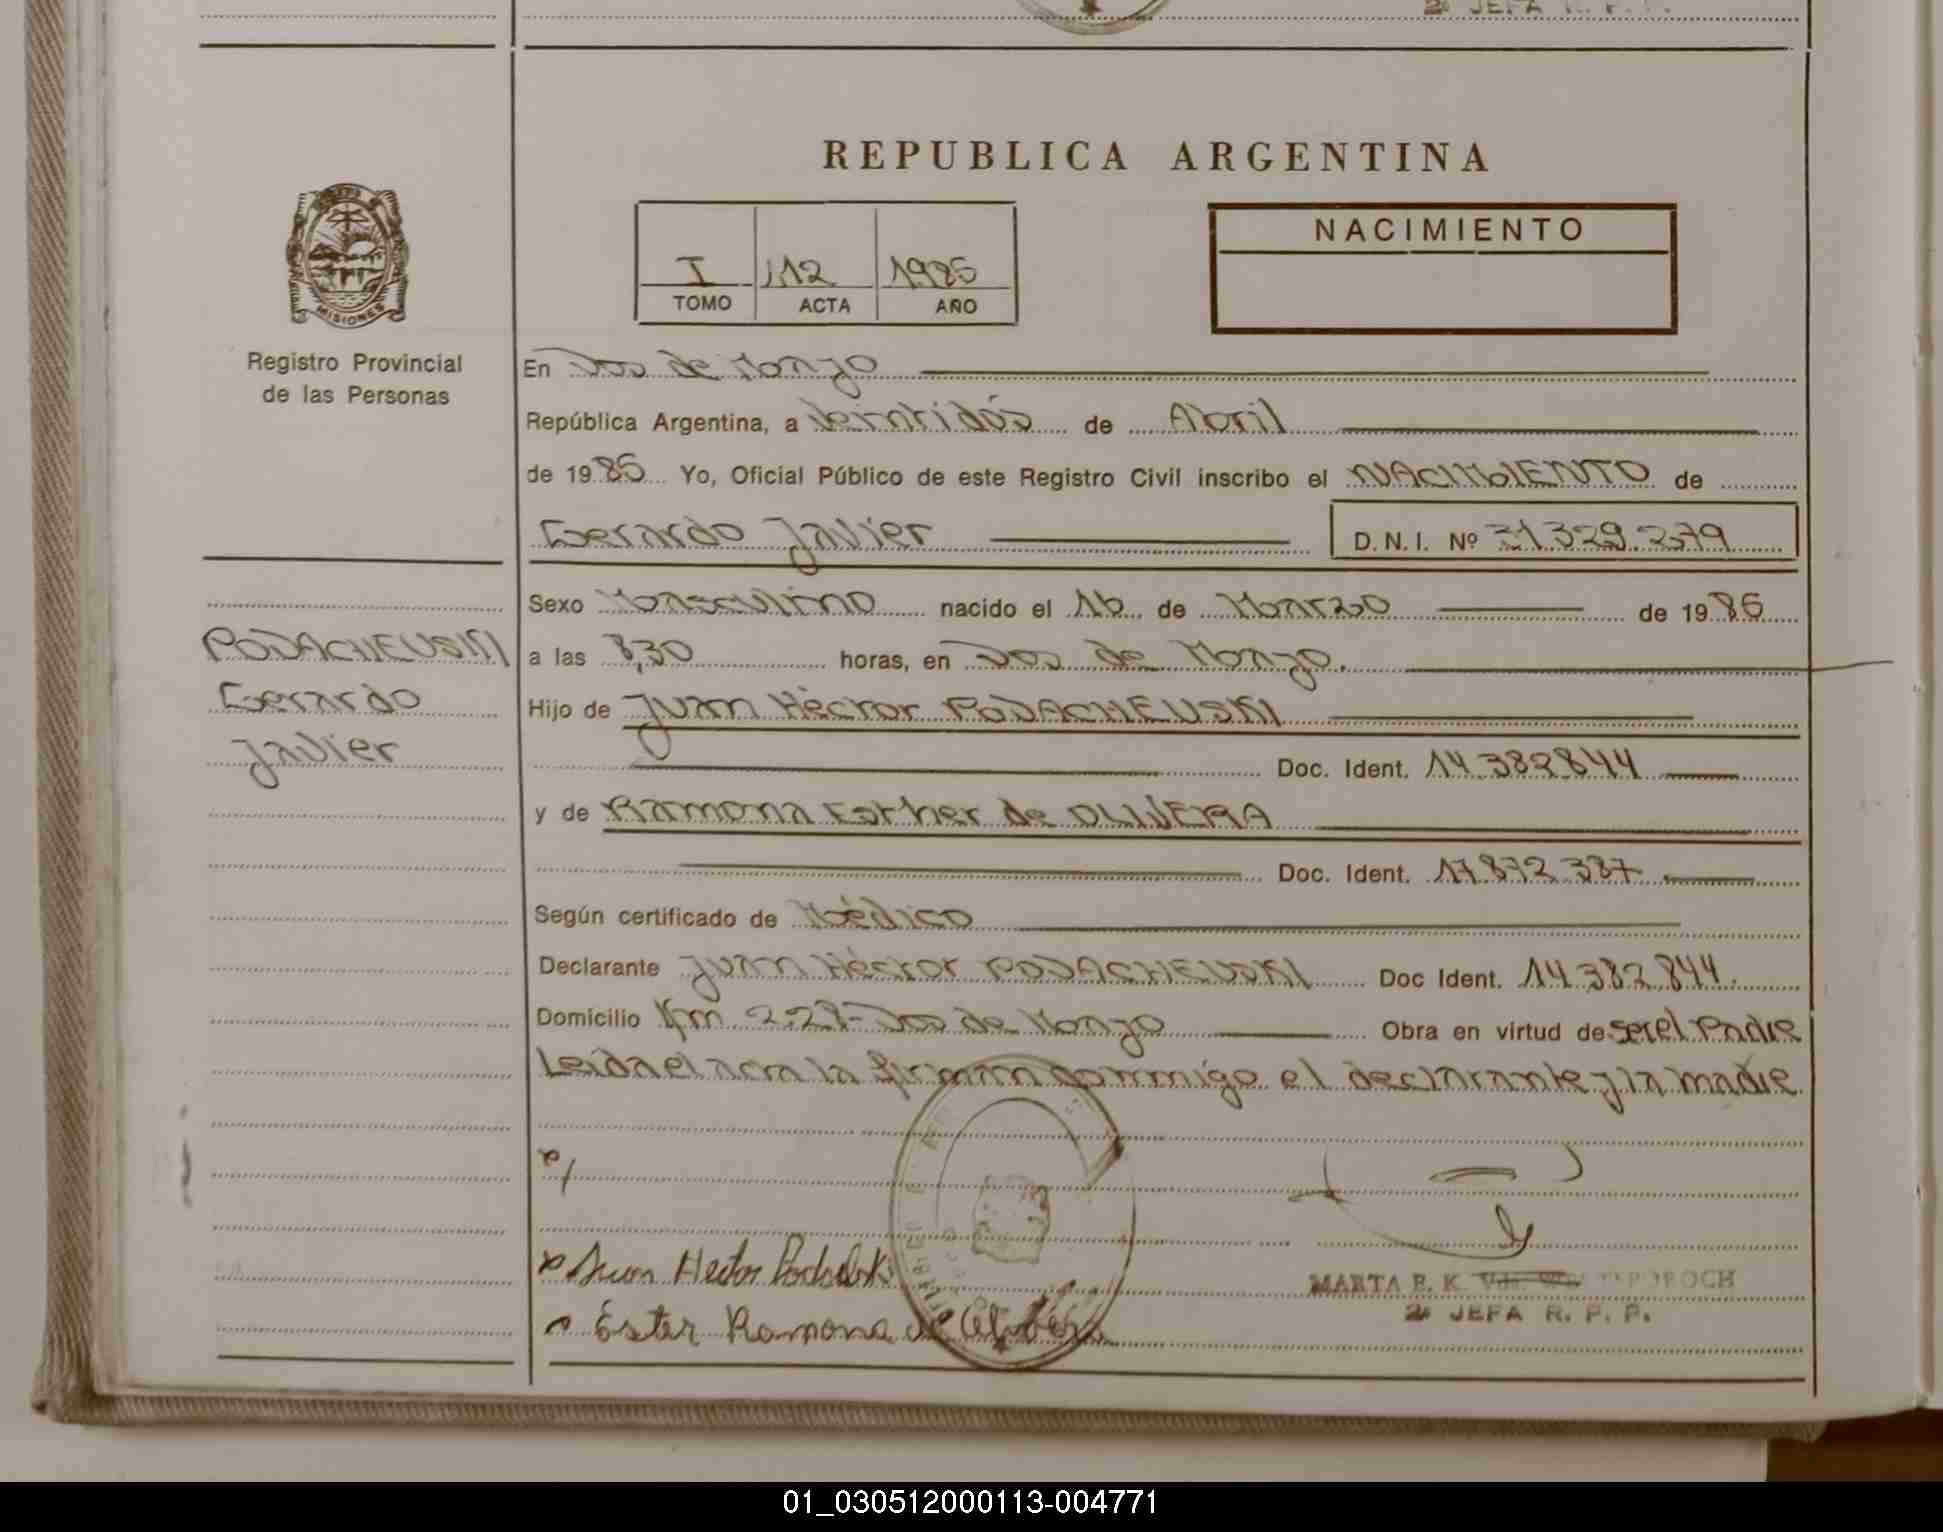 2ª JEFA R. P. P.
REPUBLICA ARGENTINA
NACIMIENTO
I 112 1985
TOMO ACTA AÑO
MISIONES
Registro Provincial
de las Personas
En Dos de Mayo
República Argentina, a Veintidós de Abril
de 1985 Yo, Oficial Público de este Registro Civil inscribo el NACIMIENTO de
Gerardo Javier D.N.I. Nº 31.329.279
Sexo Masculino nacido el 16 de Marzo de 1985
PODACHEUSKI
Gerardo
Javier
a las 8,30 horas, en Dos de Mayo.
Hijo de Juan Héctor PODACHEUSKI
Doc. Ident. 14.382844
y de Ramona Esther de OLIVERA
Doc. Ident. 17.872.387
Según certificado de Médico
Declarante Juan Héctor PODACHEUSKI Doc Ident. 14.382.844.
Domicilio Km 228- Dos de Mayo Obra en virtud de ser el Padre
Leída el acta la firman conmigo el declarante y la madre
x Juan Hector
Ester Ramona de
MARTA E. K.
2ª JEFA R. P. P.
01_030512000113-004771